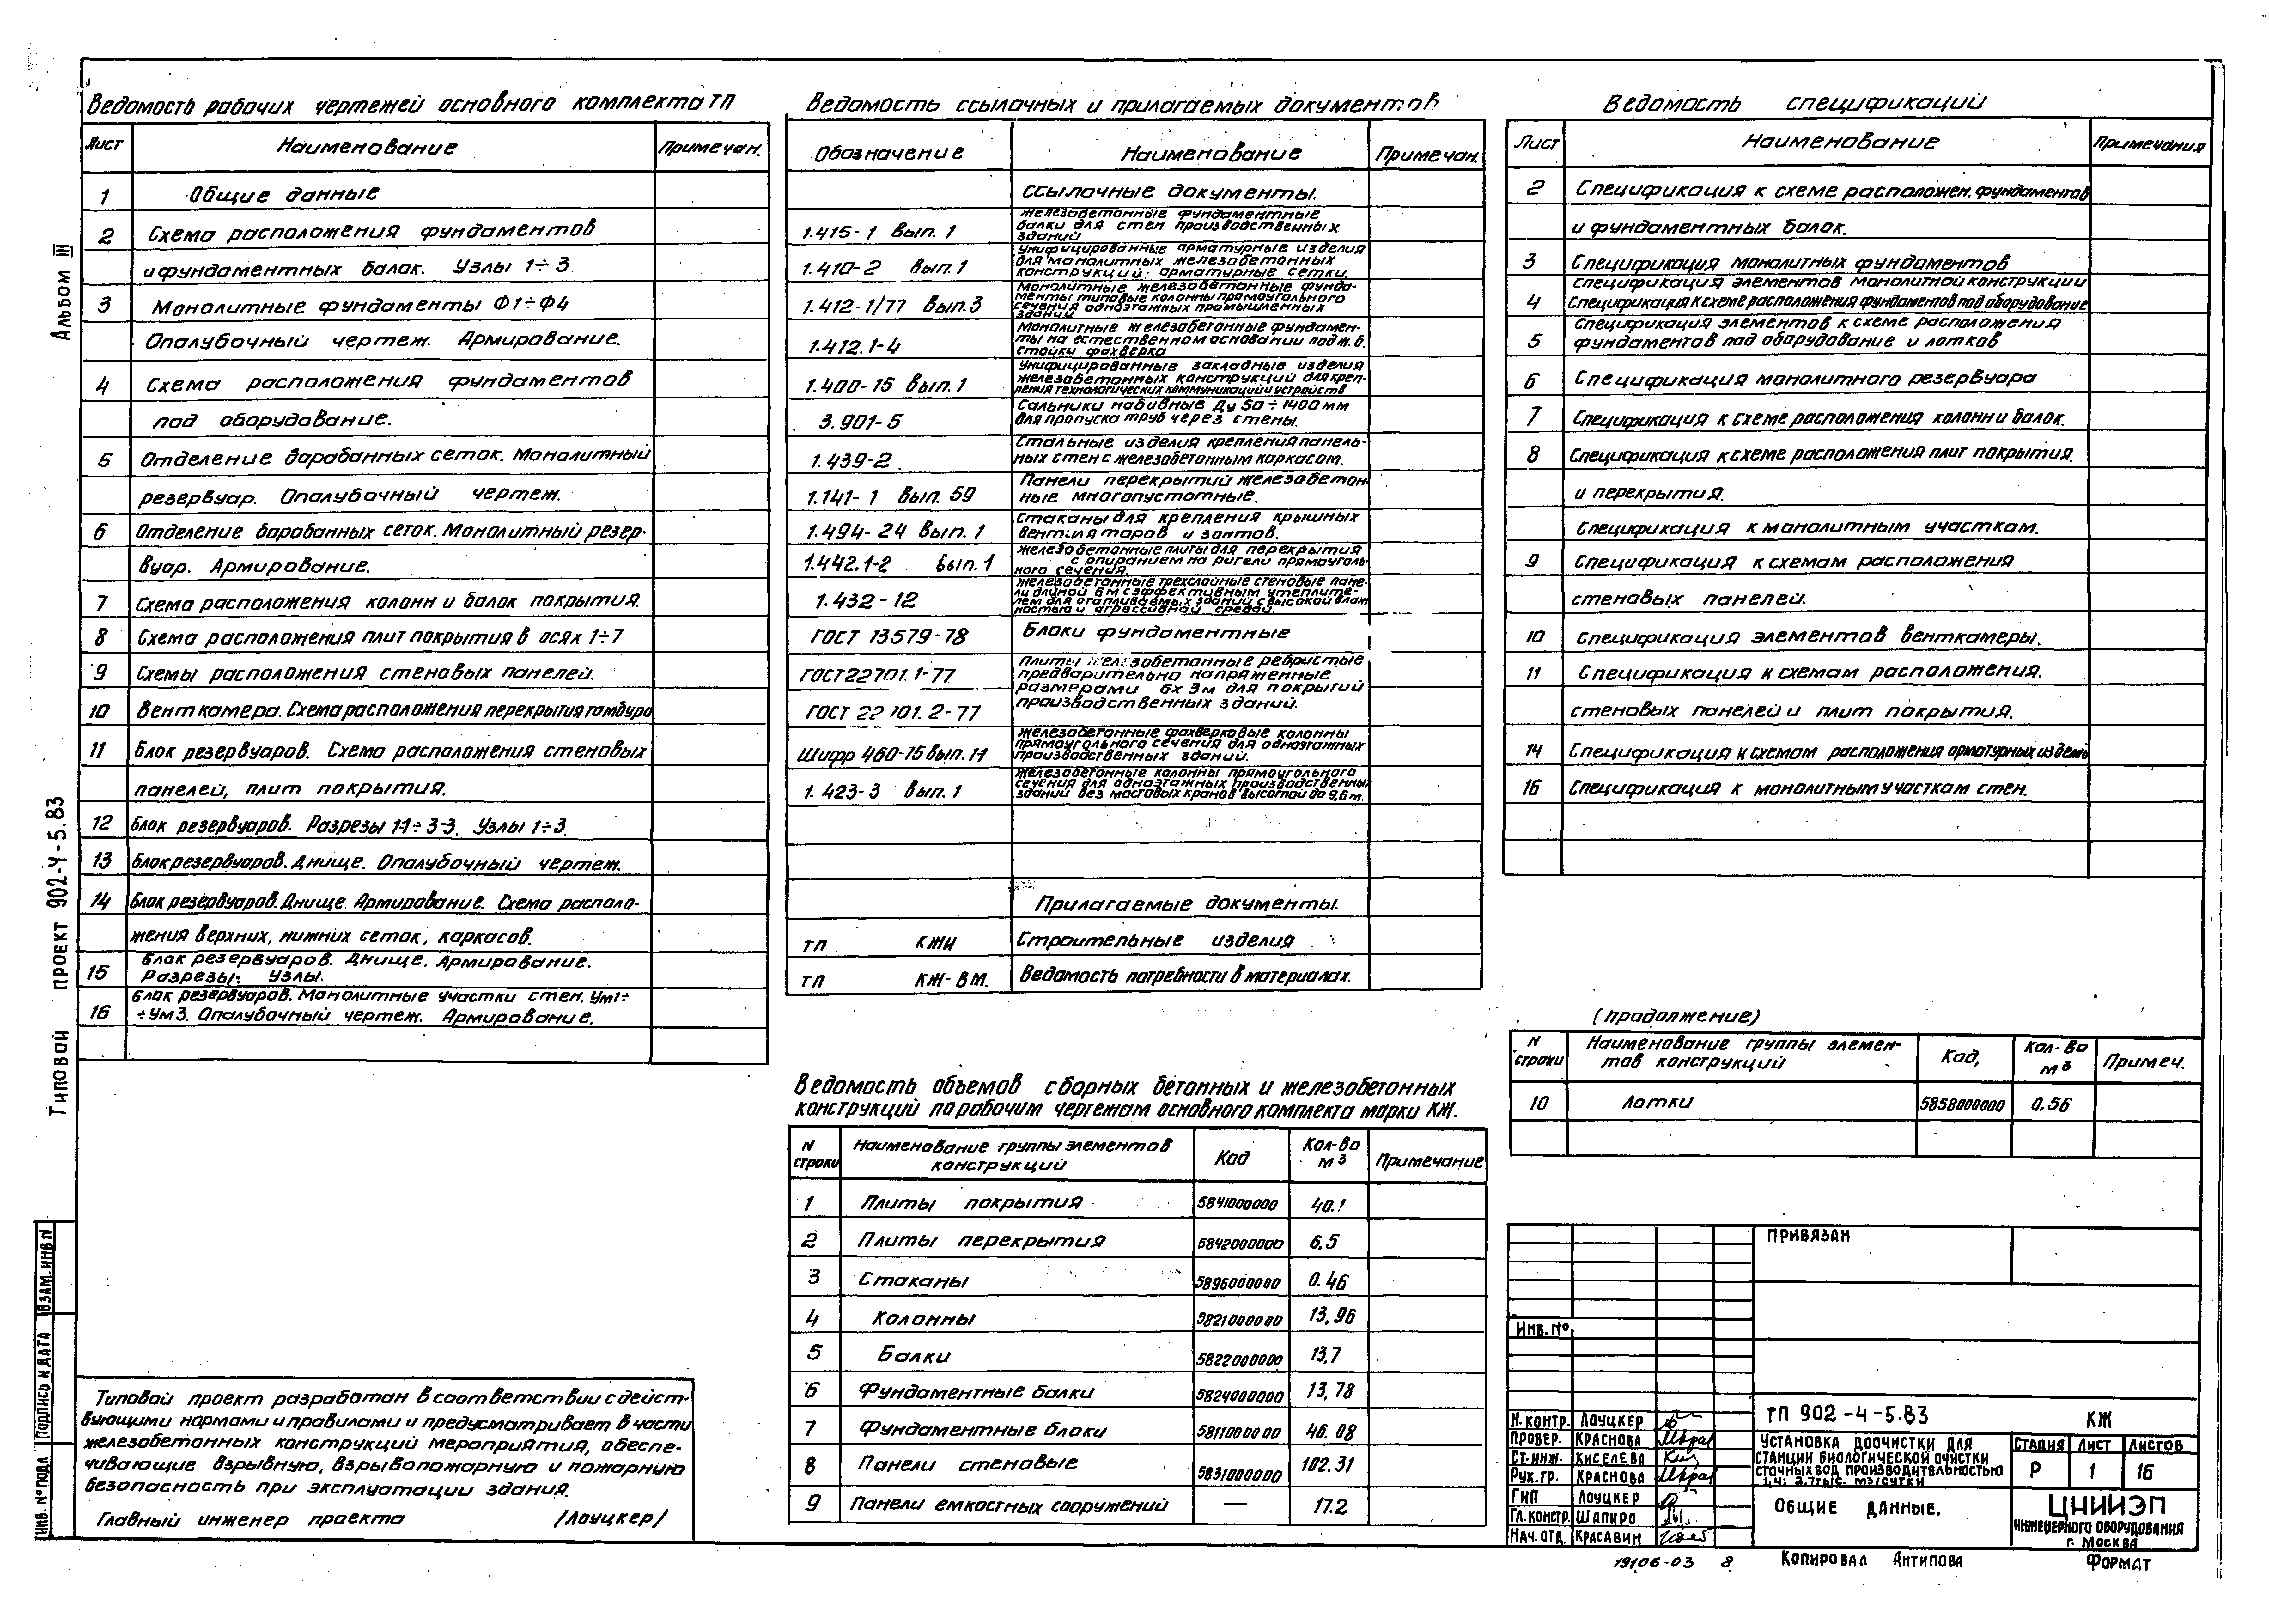 Альбом III
Типовой проект 902-4-5.83
Ведомость рабочих чертежей основного комплекта ТП
Лист Наименование Примечан.
1 Общие данные
2 Схема расположения фундаментов
и фундаментных балок. Узлы 1÷3
3 Монолитные фундаменты Ф1÷Ф4
Опалубочный чертеж. Армирование.
4 Схема расположения фундаментов
под оборудование.
5 Отделение барабанных сеток. Монолитный
резервуар. Опалубочный чертеж.
6 Отделение барабанных сеток. Монолитный резер-
вуар. Армирование.
7 Схема расположения колонн и балок покрытия.
8 Схема расположения плит покрытия в осях 1÷7
9 Схемы расположения стеновых панелей.
10 Венткамера. Схема расположения перекрытия тамбура
11 Блок резервуаров. Схема расположения стеновых
панелей, плит покрытия.
12 Блок резервуаров. Разрезы 1-1÷3-3. Узлы 1÷3.
13 Блок резервуаров. Днище. Опалубочный чертеж.
14 Блок резервуаров. Днище. Армирование. Схема располо-
жения верхних, нижних сеток, каркасов.
15 Блок резервуаров. Днище. Армирование.
Разрезы; Узлы.
16 Блок резервуаров. Монолитные участки стен. Ум1÷
÷Ум3. Опалубочный чертеж. Армирование.
Ведомость ссылочных и прилагаемых документов
Обозначение Наименование Примечан.
ссылочные документы.
1.415-1 Вып. 1 Железобетонные фундаментные
балки для стен производственных
зданий
1.410-2 Вып. 1 Унифицированные арматурные изделия
для монолитных железобетонных
конструкций; арматурные сетки.
1.412-1/77 Вып. 3 Монолитные железобетонные фунда-
менты типовые колонны прямоугольного
сечения одноэтажных промышленных
зданий
1.412.1-4 Монолитные железобетонные фундамен-
ты на естественном основании под ж.б.
стойки фахверка
1.400-15 Вып. 1 Унифицированные закладные изделия
железобетонных конструкций для креп-
ления технологических коммуникаций и устройств
3.901-5 Сальники набивные Ду 50÷1400 мм
для пропуска труб через стены.
1.439-2 Стальные изделия крепления панель-
ных стен с железобетонным каркасом.
1.141-1 Вып. 59 Панели перекрытий железобетон
ные многопустотные.
1.494-24 Вып. 1 Стаканы для крепления крышных
вентиляторов и зонтов.
1.442.1-2 Вып. 1 Железобетонные плиты для перекрытия
с опиранием на ригели прямоуголь-
ного сечения
1.432-12 Железобетонные трехслойные стеновые пане-
ли длиной 6м с эффективным утеплите-
лем для отапливаемых зданий с высокой влаж
ностью и агрессивной средой.
ГОСТ 13579-78 Блоки фундаментные
ГОСТ 22701.1-77 Плиты железобетонные ребристые
предварительно напряженные
размерами 6х3м для покрытий
ГОСТ 22701.2-77 производственных зданий.
Шифр 460-75 вып. 11 Железобетонные фахверковые колонны
прямоугольного сечения для одноэтажных
производственных зданий.
1.423-3 Вып. 1 Железобетонные колонны прямоугольного
сечения для одноэтажных производственных
зданий без мостовых кранов высотой до 9,6 м.
Прилагаемые документы.
ТП КЖИ Строительные изделия
ТП КЖ-ВМ. Ведомость потребности в материалах.
Ведомость спецификаций
Лист Наименование Примечания
2 Спецификация к схеме расположен. фундаментов
и фундаментных балок.
3 Спецификация монолитных фундаментов
Спецификация элементов монолитной конструкции
4 Спецификация к схеме расположения фундаментов под оборудование
Спецификация элементов к схеме расположения
5 фундаментов под оборудование и лотков
6 Спецификация монолитного резервуара
7 Спецификация к схеме расположения колонн и балок.
8 Спецификация к схеме расположения плит покрытия.
и перекрытия.
Спецификация к монолитным участкам.
9 Спецификация к схемам расположения
стеновых панелей.
10 Спецификация элементов венткамеры.
11 Спецификация к схемам расположения.
стеновых панелей и плит покрытия.
14 Спецификация к схемам расположения арматурных изделий
16 Спецификация к монолитным участкам стен.
(продолжение)
N строки Наименование группы элемен-
тов конструкций Код, Кол-во м3 Примеч.
10 Лотки 5858000000 0.56
Ведомость объемов сборных бетонных и железобетонных
конструкций по рабочим чертежам основного комплекта марки КЖ.
N строки Наименование группы элементов
конструкций Код Кол-во м3 Примечание
1 Плиты покрытия 5841000000 40.1
2 Плиты перекрытия 5842000000 6,5
3 Стаканы 5896000000 0.46
4 Колонны 5821000000 13,96
5 Балки 5822000000 13,7
6 Фундаментные балки 5824000000 13,78
7 Фундаментные блоки 5811000000 46.08
8 Панели стеновые 5831000000 102.31
9 Панели емкостных сооружений — 17.2
Типовой проект разработан в соответствии с дейст-
вующими нормами и правилами и предусматривает в части
железобетонных конструкций мероприятия, обеспе-
чивающие взрывную, взрывопожарную и пожарную
безопасность при эксплуатации здания.
Главный инженер проекта /Лоуцкер/
ИНВ. № ПОДЛ ПОДПИСЬ И ДАТА ВЗАМ. ИНВ N
ПРИВЯЗАН
Инв. №
Н. КОНТР. ЛОУЦКЕР
ПРОВЕР. КРАСНОВА
СТ. ИНЖ. КИСЕЛЕВА
РУК. ГР. КРАСНОВА
ГИП ЛОУЦКЕР
ГЛ. КОНСТР. ШАПИРО
НАЧ. ОТД. КРАСАВИН
ТП 902-4-5.83 КЖ
УСТАНОВКА ДООЧИСТКИ ДЛЯ
СТАНЦИИ БИОЛОГИЧЕСКОЙ ОЧИСТКИ
СТОЧНЫХ ВОД ПРОИЗВОДИТЕЛЬНОСТЬЮ
1,4; 2.7 ТЫС. М3/СУТКИ
СТАДИЯ ЛИСТ ЛИСТОВ
Р 1 16
ОБЩИЕ ДАННЫЕ.
ЦНИИЭП
ИНЖЕНЕРНОГО ОБОРУДОВАНИЯ
г. МОСКВА
19106-03 8
КОПИРОВАЛ АНТИПОВА
ФОРМАТ